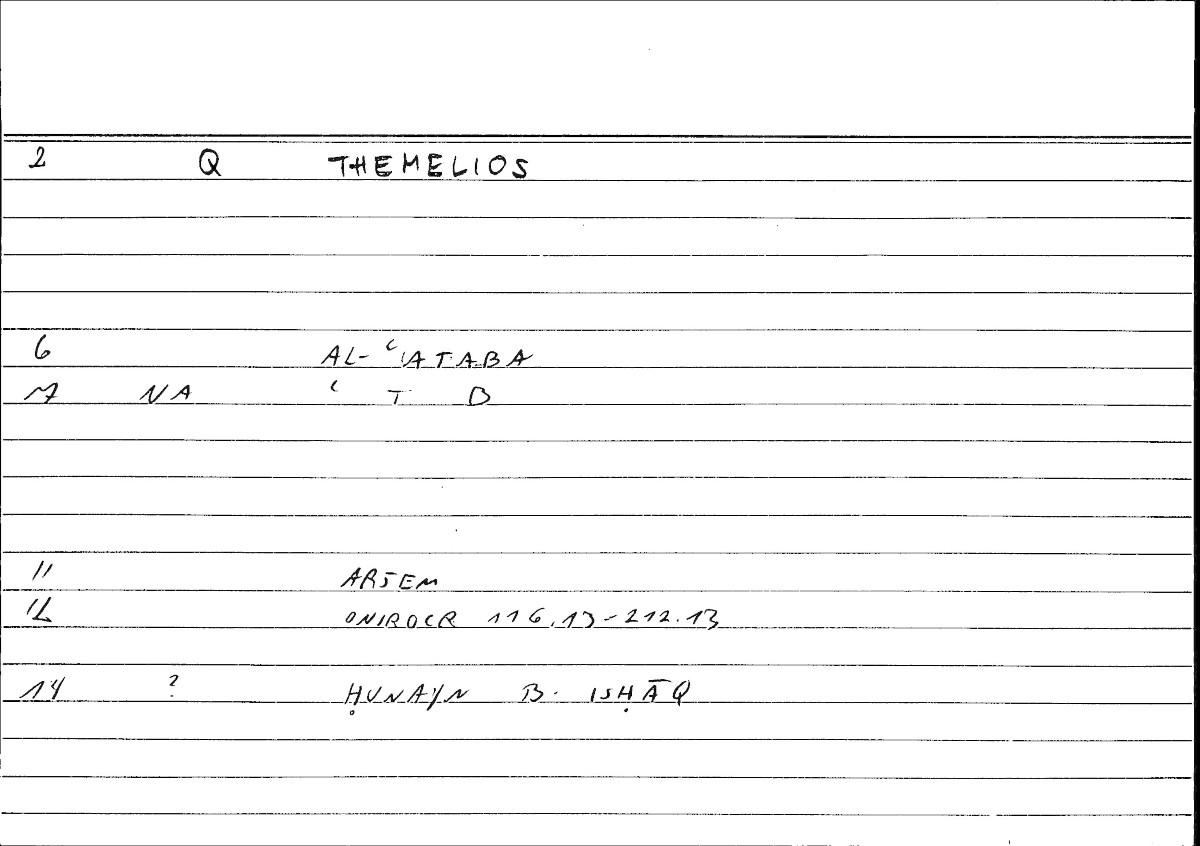 2 Q THEMELIOS
6 AL-ʿATABA
7 NA ʿ T B
11 ARTEM
12 ONIROCR 116.13-212.13
14 ? ḤUNAYN B. ISḤĀQ